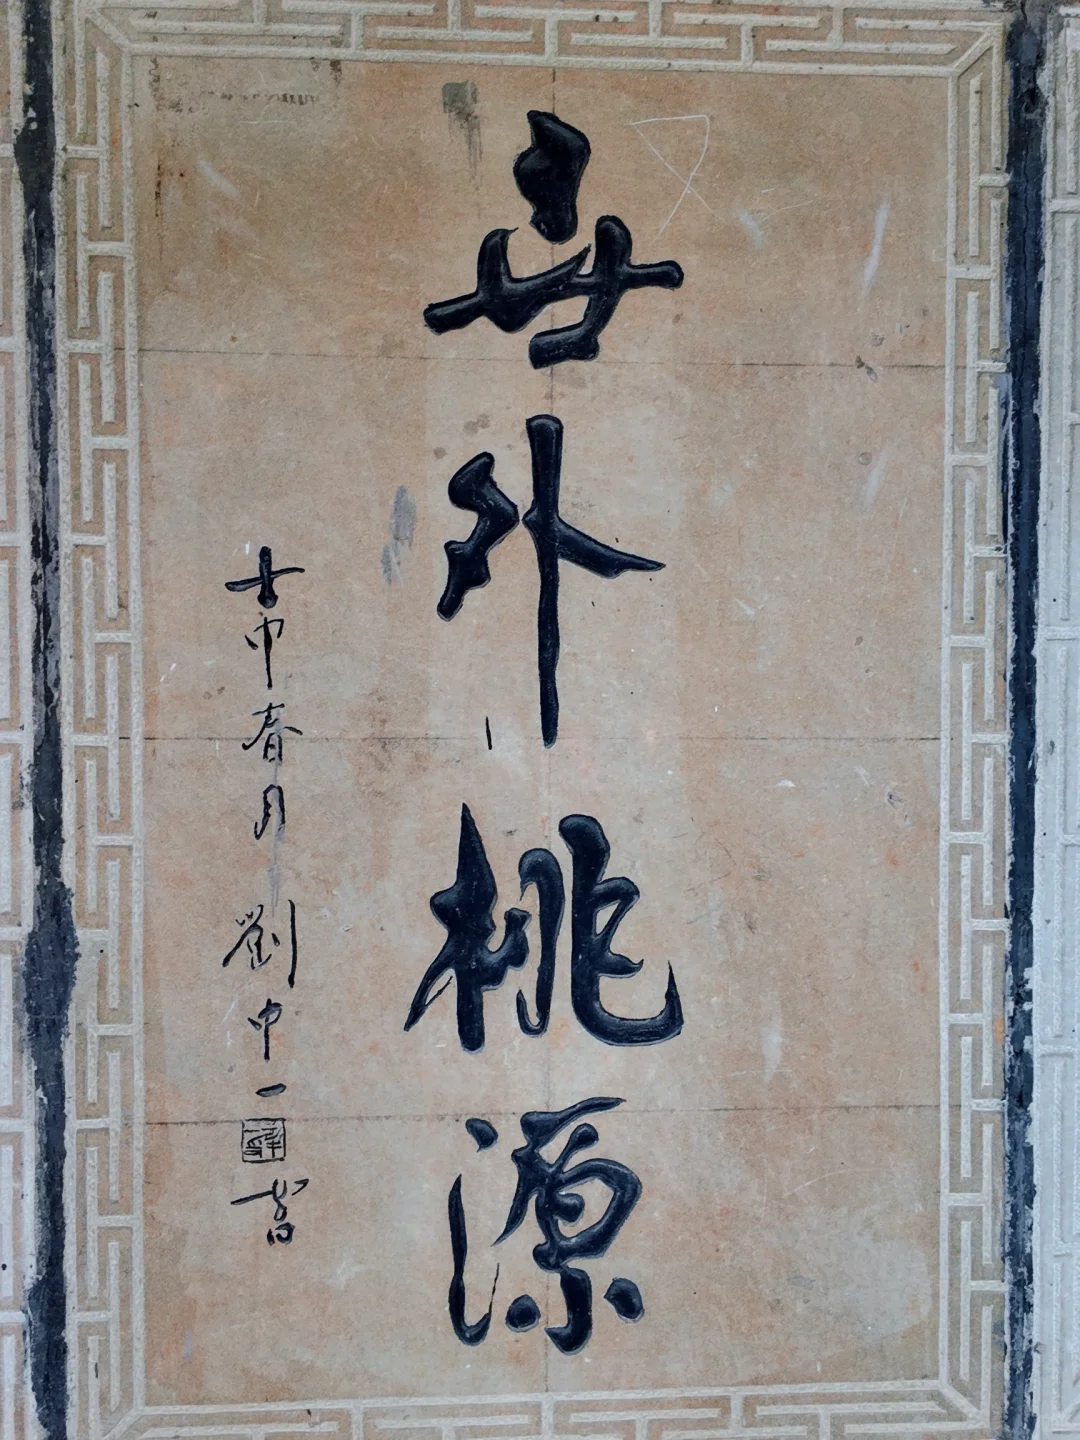 世外桃源
壬申春月 劉中一書